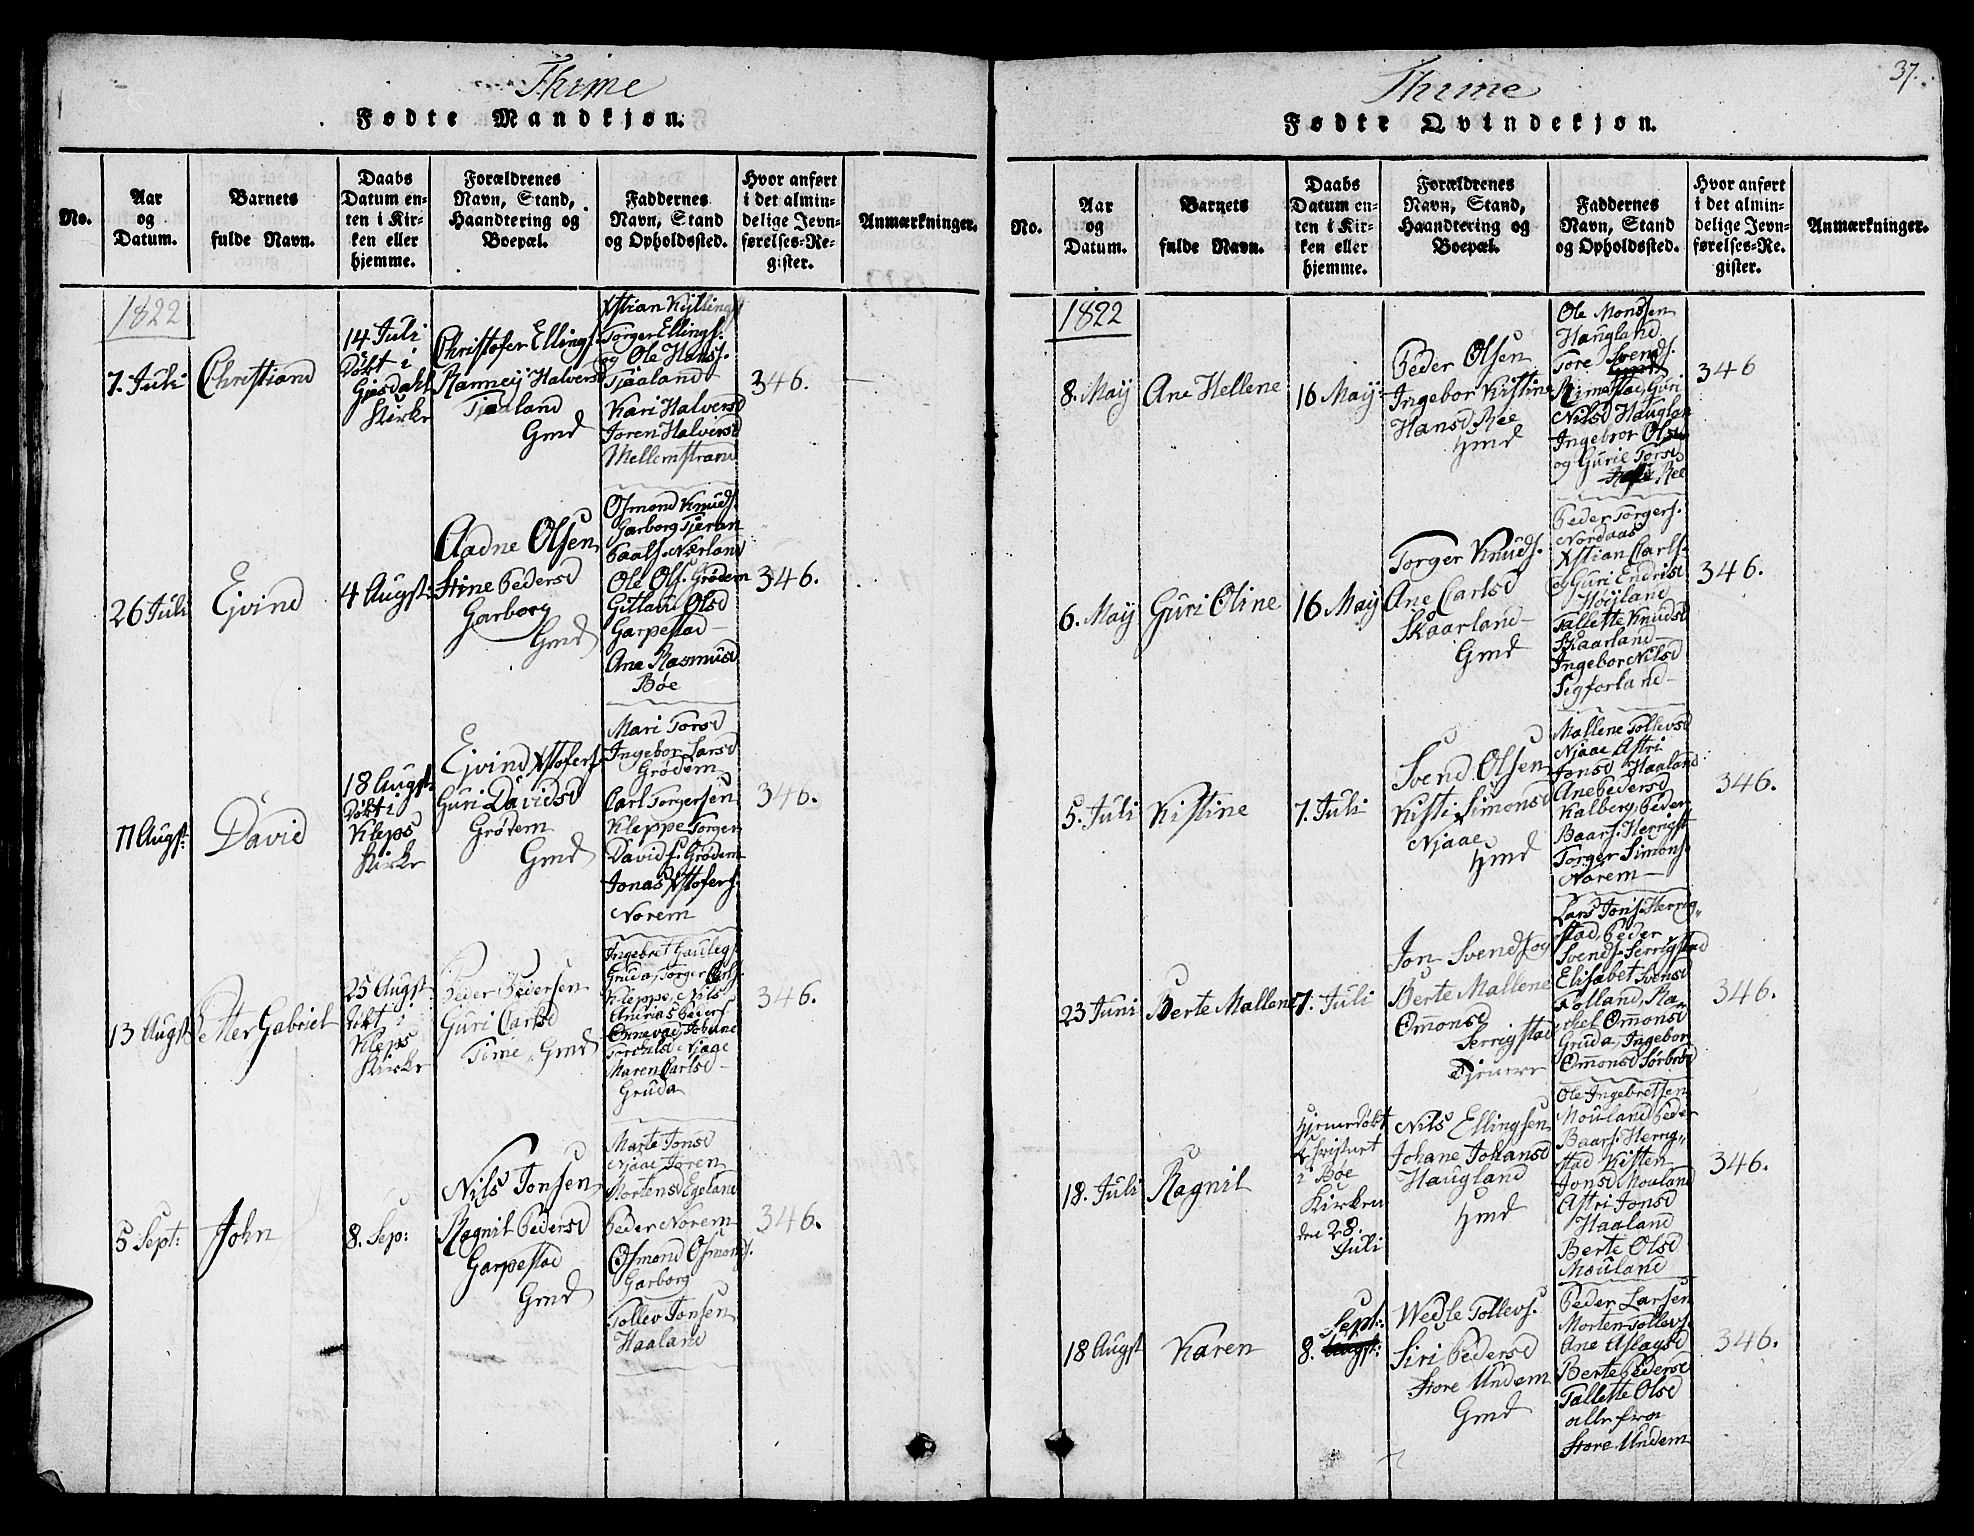 Thime
Fødte Mandkjøn.
No.
Aar
og
Datum.
Barnets
fulde Navn.
Daabs
Datum en-
ten i Kir-
ken eller
hjemme.
Forældrenes
Navn, Stand,
Haandtering og
Boepæl.
Faddernes
Navn, Stand
og Opholdssted.
Hvor anført
i det almin-
delige Jevn-
førelses-Re-
gister.
Anmærkninger.
1822
7. Juli
Christiand
14 Juli
Døbt i
Gjesdahl
Kirke
Christofer Ellings.
Rannej Halversd
Tjaaland
Gmd
Xstian Kyllings
Torger Ellings.
og Ole Hans.
Tjaaland
Kari Halversd
Joren Halversd
Mellemstrand
346.
26 Juli
Ejvind
4 Augst:
Aadne Olsen
Stine Pedersd
Garborg
Gmd
Osmond Knuds.
Garborg Tjeran
Paals. Nærland
Ole Ols. Grødem
Gitland Olsd
Garpestad
Ane Rasmusd
Bøe
346.
11 Augst:
David
18 Augst:
Døbt i
Kleps
Kirke
Ejvind Xstofers.
Guri Davidsd
Grødem
Gmd
Mari Torsd
Ingebor Larsd
Grødem
Carl Torgersen
Kleppe Torger
Davids. Grødem
Jonas Xstofers.
Norem
346.
13 Augst
Petter Gabriel
25 Augst
Døbt i
Kleps
Kirke
Peder Pedersen
Guri Carlsd
Time, Gmd
Ingebret Gauleg
Gruda, Torger Carls.
Kleppe, Nils
Andrias Peders.
Njaae
Maren Carlsd
Gruda
346.
5 Sept:
John
8. Sep:
Nils Jonsen
Ragnil Pedersd
Garpestad
Gmd
Marte Jonsd
Njaae Joren
Mortensd Egeland
Peder Norem
Osmond Osmonds.
Garborg
Tollev Jonsen
Haaland
346.
37.
Thime
Fødte Qvindekjøn.
No.
Aar
og
Datum.
Barnets
fulde Navn.
Daabs
Datum en-
ten i Kir-
ken eller
hjemme.
Forældrenes
Navn, Stand,
Haandtering og
Boepæl.
Faddernes
Navn, Stand
og Opholdssted.
Hvor anført
i det almin-
delige Jevn-
førelses-Re-
gister.
Anmærkninger.
1822
8. May
Ane Hellene
16 May:
Peder Olsen
Ingebor Kistine
Hansd Ree
Hmd
Ole Monssen
Haugland
Tore Svends.
Rimestad, Guri
Nilsd Haugland
Ingebror Olsd
og Gurie Torsd
Ree
346
6. May
Guri Oline
16 May
Torger Knuds.
Ane Carlsd
Skaarland
Gmd
Peder Torgers.
Nordaas
Xstian Carls.
og Guri Endrisd
Høyland
Tallette Knudsd
Skaarland
Ingebor Nilsd
Sigforland
346.
5. Juli
Kistine
7. Juli
Svend Olsen
Kisti Simonsd
Njaae
Hmd
Mallene Tollevsd
Njaae Astri
Jonsd Haaland
Ane Pedersd
Kalberg, Peder
Baars. Herrigst
Torger Simons.
Norem
346.
23 Juni
Berte Mallene
7. Juli
Jon Svends. og
Berte Mallene
Ommonsd
Serrigstad
Lars Jons. Herrig-
stad, Peder
Svends. Serrigstad
Elisabet Svensd
Folland, Ra-
chel Ommonsd
Gruda, Ingebor
Ommonsd Sørbrød
346.
18. Juli
Ragnil
Hjemedøbt
Christnet
i Bøe
Kirken
den 28.
Juli
Nils Ellingsen
Johane Johansd
Haugland
Hmd
Ole Ingebretsen
Mouland Peder
Baars. Herrig-
stad Kisten
Jonsd Mouland
Astri Jonsd
Haaland
Berte Olsd
Mouland
346.
18 Augst
Karen
Sept:
8. Augst:
Wedle Tollevs.
Siri Pedersd
Store Undem
Gmd
Peder Larsen
Morten Tollevs.
Ane Aslagsd
Berte Pedersd
Tallette Olsd
alle fra
Store Undem
346.